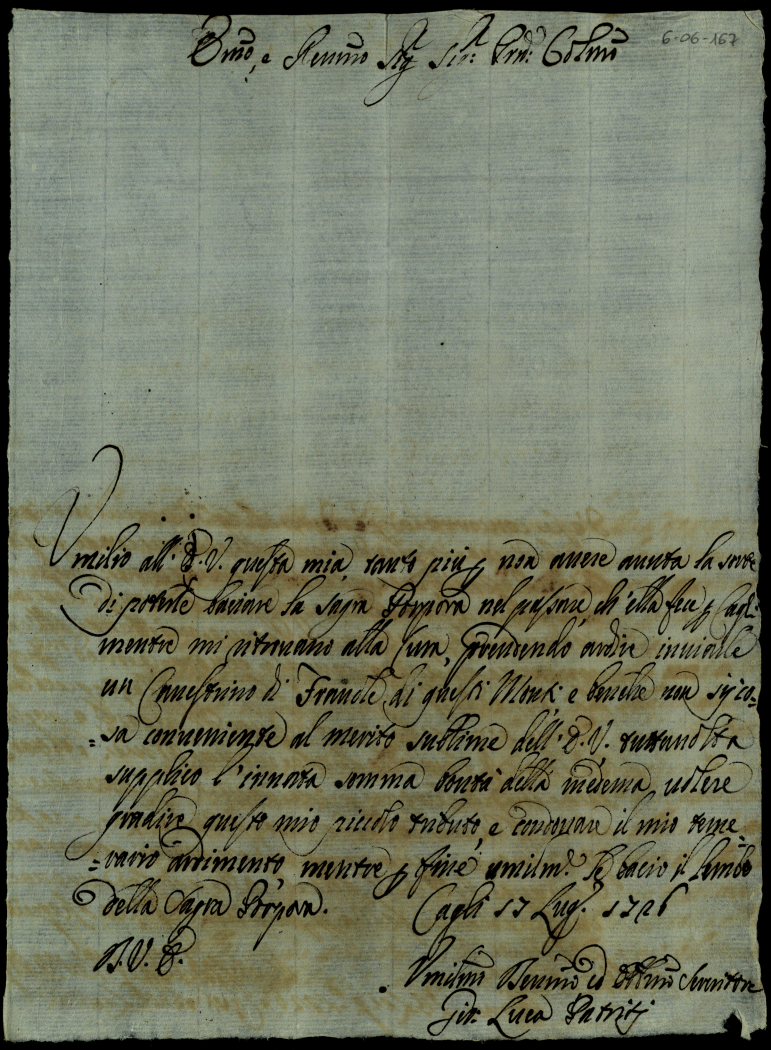 Emo, e Revmo Sig. Sig. Prn. Colmo
6-06-167
Umilio all' E. V. questa mia, tanto più p non avere avuta la sorte
di poterle baciare la sagra Porpora nel passare, ch'ella fece p Cagli
mentre mi ritrovavo alla Cura, prendendo ardire inviarle
un Canestrino di Fravole di questi Monti, e benche non sij co-
=sa conveniente al merito sublime dell' E. V. tuttavolta
supplico l'innata somma bontà della medema volere
gradire questo mio piccolo tributo, e condonare il mio teme=
=rario ardimento, mentre p fine umilm.e le bacio il lembo
della Sagra Porpora. Cagli 17 Lug. 1726
D. V. E.
Umilmo Devmo ed Obbmo Servitore
Gio: Luca Patritij